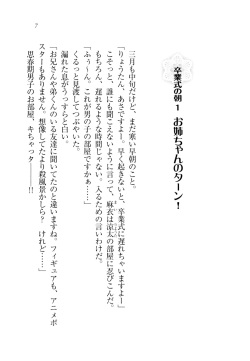 7
卒業式の朝1 お姉ちゃんのターン!
三月も中旬だけど、まだ寒い早朝のこと。
「りょうたん、あさですよー。早く起きないと、卒業式に遅れちゃいますよー」
こそっと、誰にも聞こえないように言って、麻衣は涼太の部屋に忍びこんだ。
もちろん、遅れるような時間じゃない。入るための言いわけだ。
「かっ～ん。これが男の子の部屋ですかぁ……」
くるっと見渡してつぶやいた。
漏れた息がうっすらと白い。
「お兄さんや弟くんのいる友達に聞いてたのと違いますね。フィギュアも、アニメポ
スターもありません。想像してたより殺風景かしら? けれど……」
思春期男子のお部屋、キちゃっター――――!!